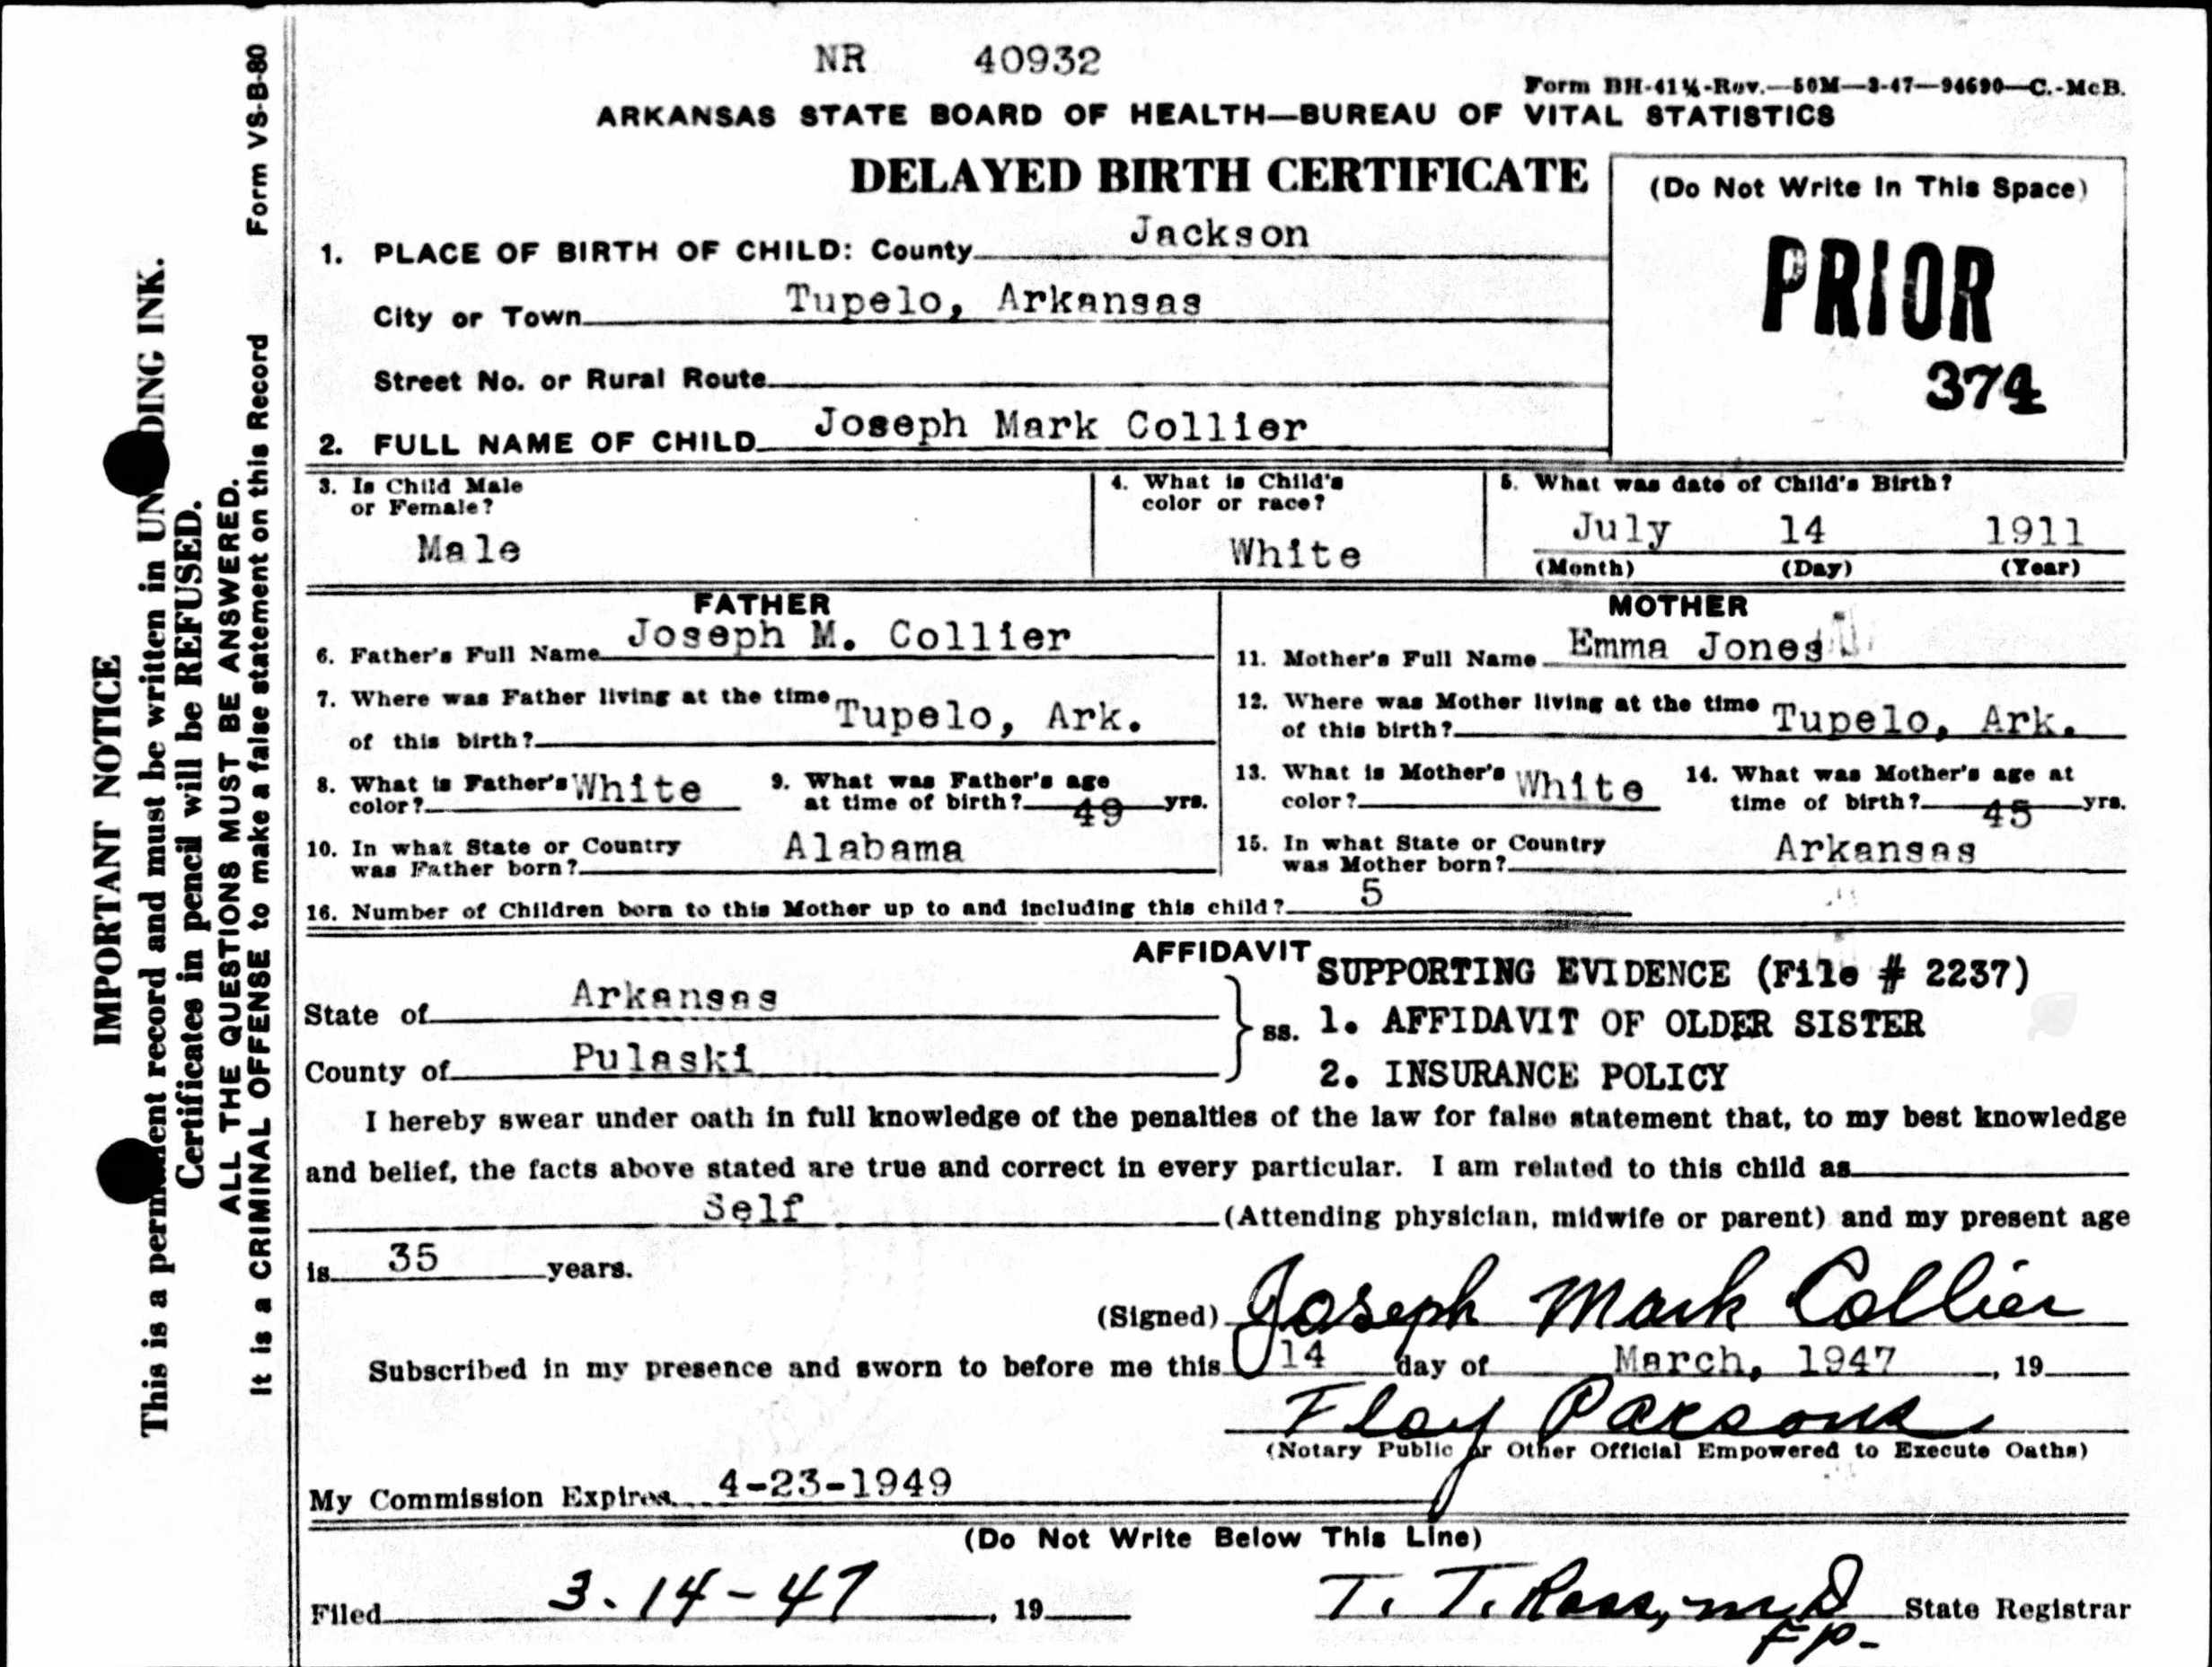 NR 40932
Form BH-41¼-Rev.—50M—3-47—94690—C.-McB.
ARKANSAS STATE BOARD OF HEALTH—BUREAU OF VITAL STATISTICS
DELAYED BIRTH CERTIFICATE
(Do Not Write In This Space)
PRIOR
374
1. PLACE OF BIRTH OF CHILD: County Jackson
City or Town Tupelo, Arkansas
Street No. or Rural Route
2. FULL NAME OF CHILD Joseph Mark Collier
3. Is Child Male
or Female?
Male
4. What is Child's
color or race?
White
5. What was date of Child's Birth?
July 14 1911
(Month) (Day) (Year)
FATHER
6. Father's Full Name Joseph M. Collier
7. Where was Father living at the time
of this birth? Tupelo, Ark.
8. What is Father's
color? White
9. What was Father's age
at time of birth? 49 yrs.
10. In what State or Country
was Father born? Alabama
MOTHER
11. Mother's Full Name Emma Jones
12. Where was Mother living at the time
of this birth? Tupelo, Ark.
13. What is Mother's
color? White
14. What was Mother's age at
time of birth? 45 yrs.
15. In what State or Country
was Mother born? Arkansas
16. Number of Children born to this Mother up to and including this child? 5
AFFIDAVIT
State of Arkansas
County of Pulaski
ss.
SUPPORTING EVIDENCE (File # 2237)
1. AFFIDAVIT OF OLDER SISTER
2. INSURANCE POLICY
I hereby swear under oath in full knowledge of the penalties of the law for false statement that, to my best knowledge
and belief, the facts above stated are true and correct in every particular. I am related to this child as
Self (Attending physician, midwife or parent) and my present age
is 35 years.
(Signed) Joseph Mark Collier
Subscribed in my presence and sworn to before me this 14 day of March, 1947, 19
Floy Parsons
(Notary Public or Other Official Empowered to Execute Oaths)
My Commission Expires 4-23-1949
(Do Not Write Below This Line)
Filed 3-14-47, 19
T. T. Ross, M.D. State Registrar
FP-
IMPORTANT NOTICE
This is a permanent record and must be written in UNFADING INK.
Certificates in pencil will be REFUSED.
ALL THE QUESTIONS MUST BE ANSWERED.
It is a CRIMINAL OFFENSE to make a false statement on this Record
Form VS-B-80